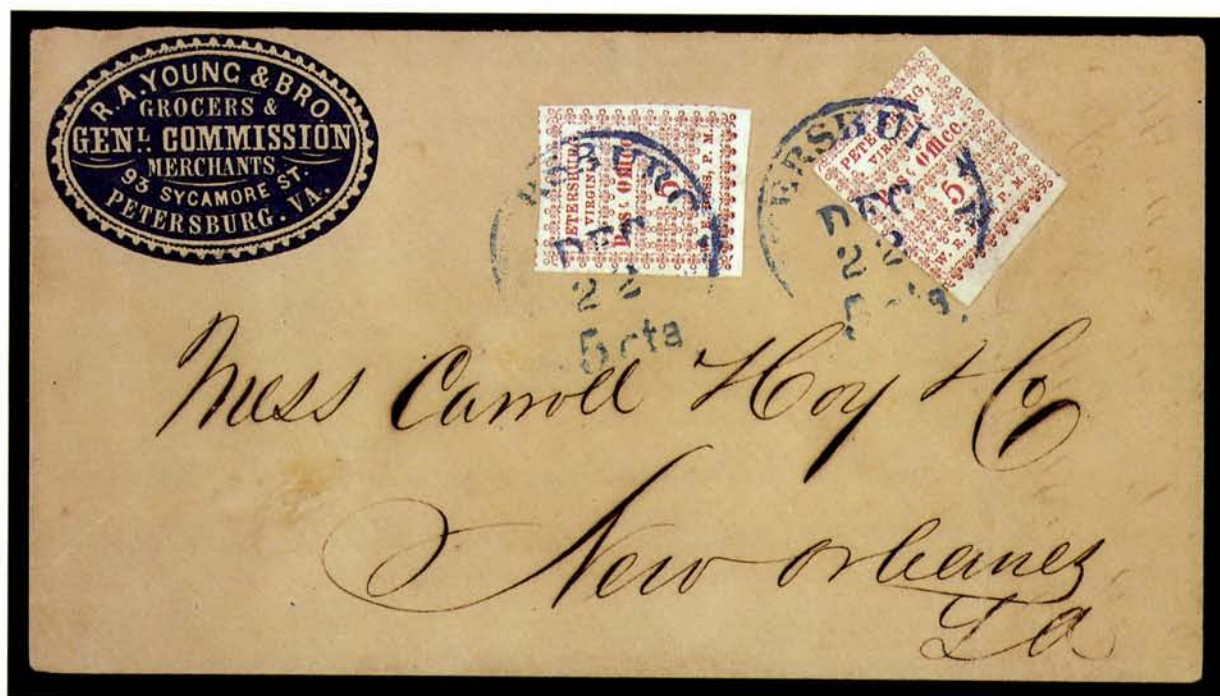 R.A. YOUNG & BRO.
GROCERS &
GENL. COMMISSION
MERCHANTS.
93 SYCAMORE ST.
PETERSBURG. VA.
PETERSBURG
VIRGINIA
Post Office
5
W. E. BASS, P. M.
RSBURG
DEC
22
5 cts
PETERSBURG,
VIRGINIA.
Post Office.
5
W. E. P. M.
ERSBU
DEC
2
5 cts.
Mess Carroll Hoy & Co
New Orleans
La